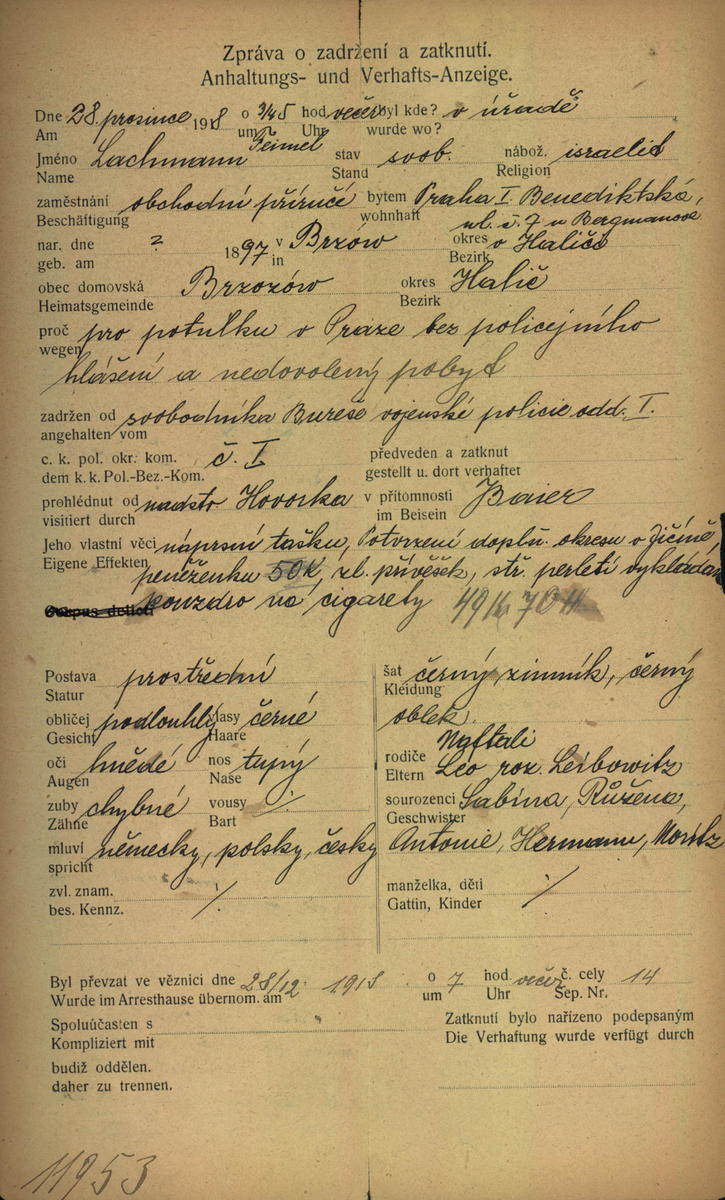 Zpráva o zadržení a zatknutí.
Anhaltungs- und Verhafts-Anzeige.
Dne 28. prosince 1918 o 3/45 hod. večer byl kde? v úřadě
Am um Uhr wurde wo?
Jméno Lachmann Feimel stav svob. nábož. israelit
Name Stand Religion
zaměstnání obchodní příručí bytem Praha I. Benediktská,
Beschäftigung wohnhaft ul. č. 7 u Bergmanové
nar. dne ? 1897 v Brzów okres v Haliči
geb. am in Bezirk
obec domovská Brzozów okres Halič
Heimatsgemeinde Bezirk
proč pro potulku v Praze bez policejního
wegen
hlášení a nedovolený pobyt
zadržen od svobodníka Bureše vojenské policie odd. I.
angehalten vom
c. k. pol. okr. kom. č. I předveden a zatknut
dem k. k. Pol.-Bez.-Kom. gestellt u. dort verhaftet
prohlédnut od nadstr Hovorka v přítomnosti Baier
visitiert durch im Beisein
Jeho vlastní věci náprsní tašku, Potvrzení doplň. okresu v Jičíně,
Eigene Effekten peněženku 50K, zl. přívěšek, stř. perletí vykládan
Corpus delicti pouzdro na cigarety 49K 70H
Postava prostřední
Statur
obličej podlouhlý vlasy černé
Gesicht Haare
oči hnědé nos tupý
Augen Nase
zuby chybné vousy ./.
Zähne Bart
mluví německy, polsky, česky
spricht
zvl. znam. ./.
bes. Kennz.
šat černý zimník, černý
Kleidung
oblek.
Naftali
rodiče Leo roz. Leibowitz
Eltern
sourozenci Sabina, Růžena,
Geschwister
Antonie, Hermann, Moritz
manželka, děti ./.
Gattin, Kinder
Byl převzat ve věznici dne 28/12. 1918 o 7 hod. večer č. cely 14
Wurde im Arresthause übernom. am um Uhr Sep. Nr.
Spoluúčasten s
Kompliziert mit
Zatknutí bylo nařízeno podepsaným
Die Verhaftung wurde verfügt durch
budiž oddělen.
daher zu trennen.
11953